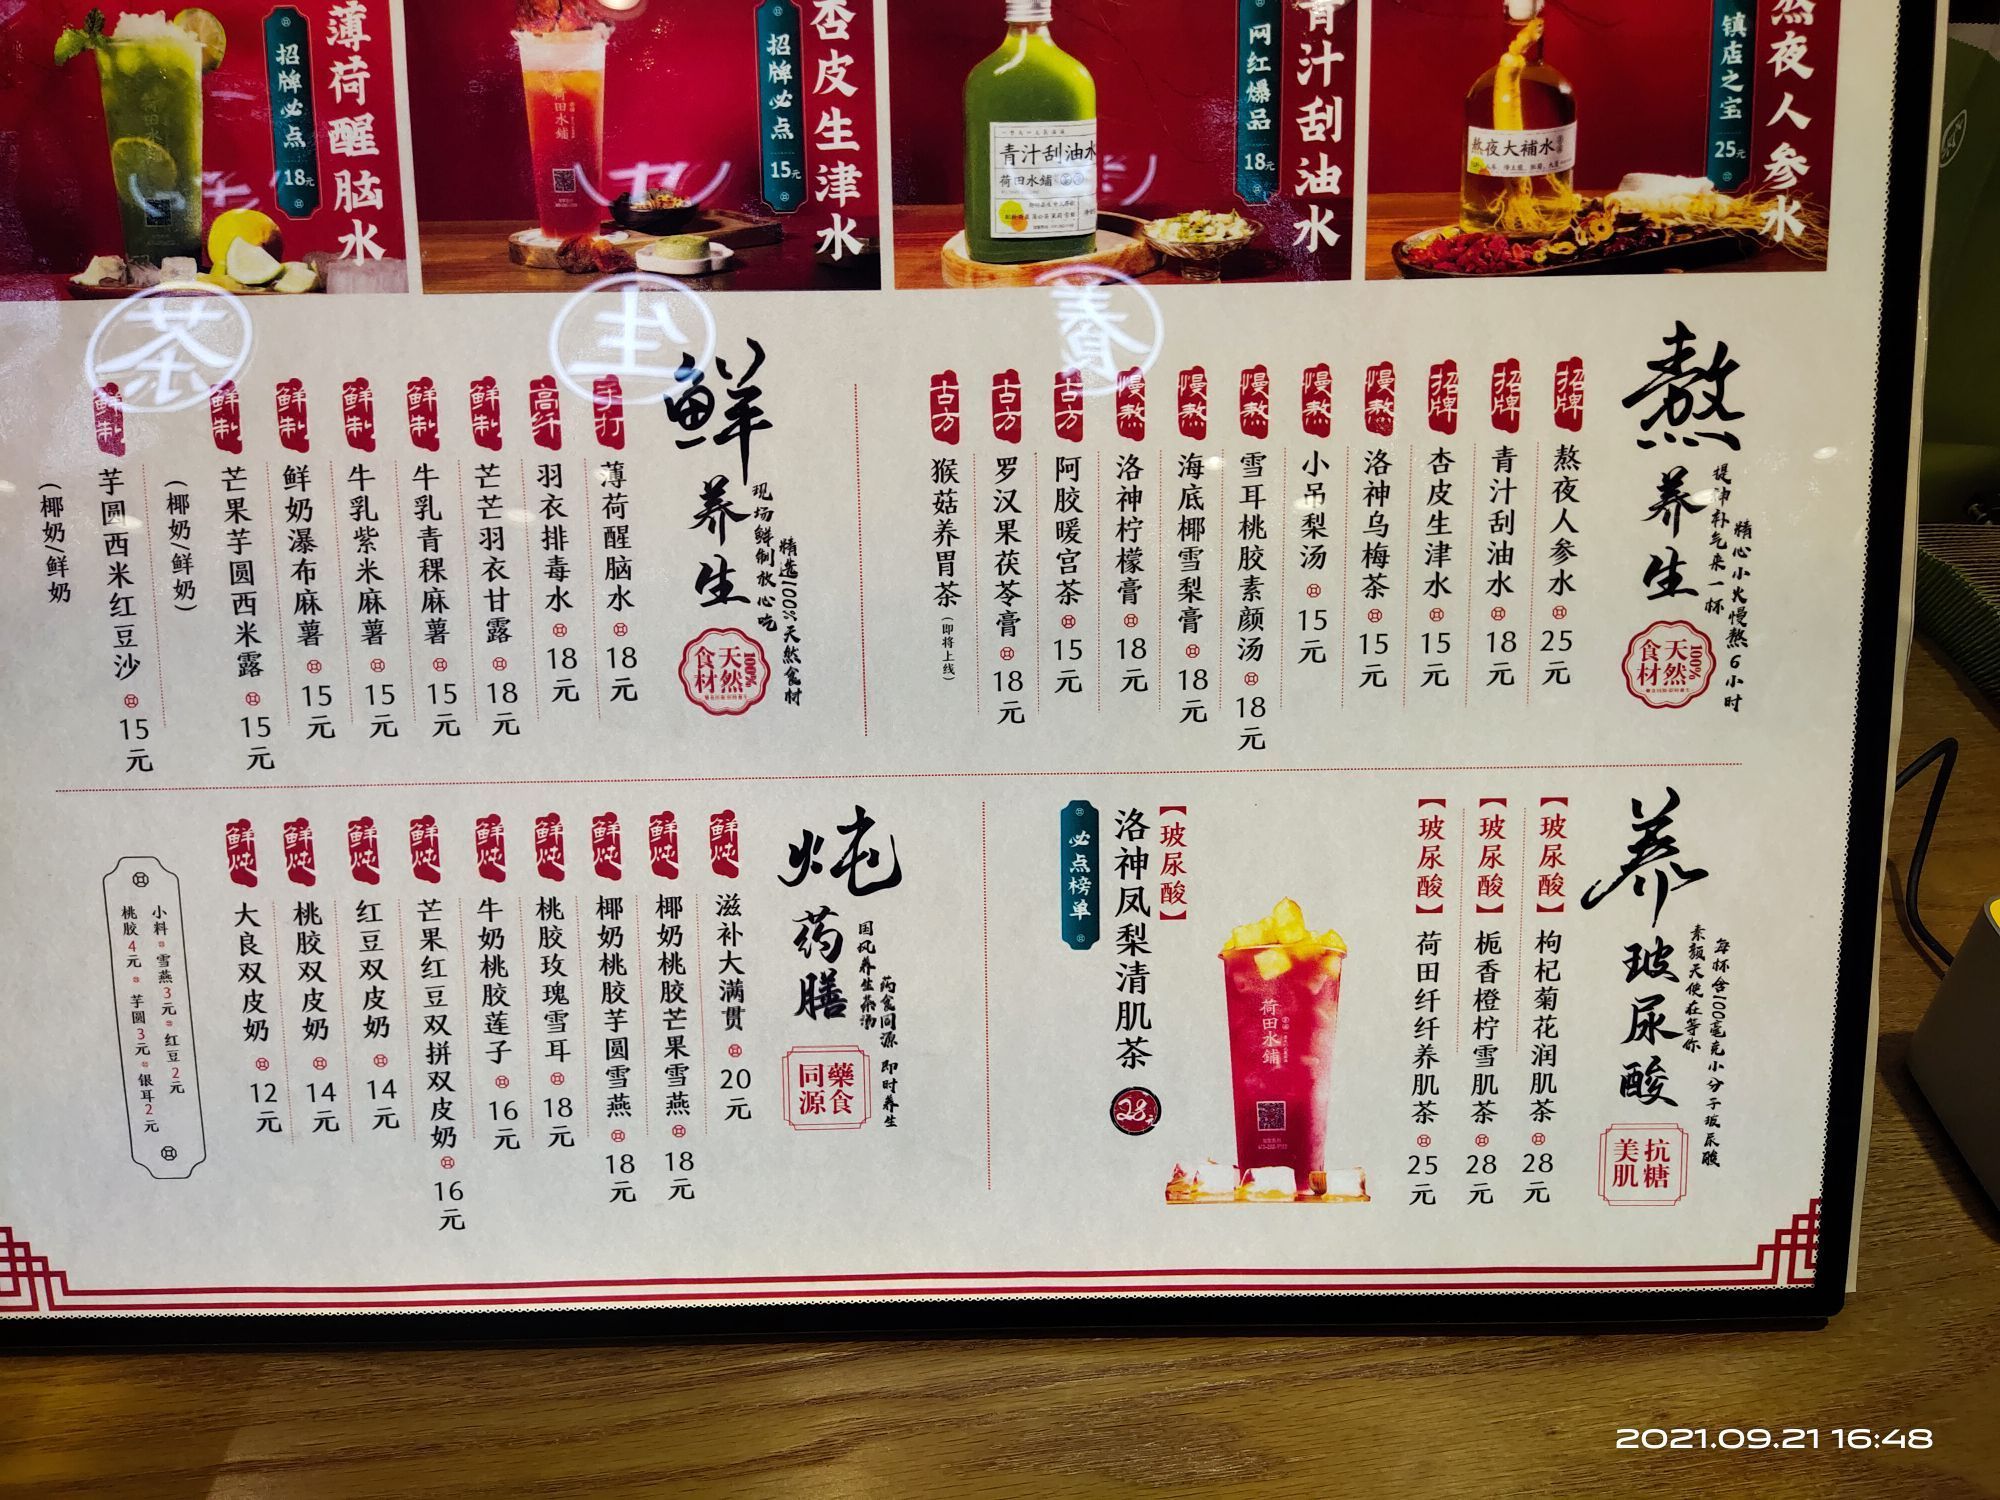 薄荷醒脑水
招牌必点 18元
杏皮生津水
招牌必点 15元
青汁刮油水
网红爆品 18元
熬夜人参水
镇店之宝 25元
荷田水铺
荷田水鋪
青汁刮油水
荷田水鋪
熬夜大補水
茶
生
養
熬养生
提神补气来一杯
精心小火慢熬6小时
100%天然食材
招牌 熬夜人参水 25元
招牌 青汁刮油水 18元
招牌 杏皮生津水 15元
慢熬 洛神乌梅茶 15元
慢熬 小吊梨汤 15元
慢熬 雪耳桃胶素颜汤 18元
慢熬 海底椰雪梨膏 18元
慢熬 洛神柠檬膏 18元
古方 阿胶暖宫茶 15元
古方 罗汉果茯苓膏 18元
古方 猴菇养胃茶(即将上线)
鲜养生
现场鲜制放心吃
精选100%天然食材
100%天然食材
手打 薄荷醒脑水 18元
高纤 羽衣排毒水 18元
鲜制 芒芒羽衣甘露 18元
鲜制 牛乳青稞麻薯 15元
鲜制 牛乳紫米麻薯 15元
鲜制 鲜奶瀑布麻薯 15元
鲜制 芒果芋圆西米露 15元
(椰奶/鲜奶)
鲜制 芋圆西米红豆沙 15元
(椰奶/鲜奶
养玻尿酸
素颜天使在等你
每杯含100毫克小分子玻尿酸
抗糖美肌
【玻尿酸】枸杞菊花润肌茶 28元
【玻尿酸】栀香橙柠雪肌茶 28元
【玻尿酸】荷田纤纤养肌茶 25元
荷田水鋪
【玻尿酸】
洛神凤梨清肌茶 28元
必点榜单
炖药膳
国风养生茶汤
药食同源 即时养生
藥食同源
鲜炖 滋补大满贯 20元
鲜炖 椰奶桃胶芒果雪燕 18元
鲜炖 椰奶桃胶芋圆雪燕 18元
鲜炖 桃胶玫瑰雪耳 18元
鲜炖 牛奶桃胶莲子 16元
鲜炖 芒果红豆双拼双皮奶 16元
鲜炖 红豆双皮奶 14元
鲜炖 桃胶双皮奶 14元
鲜炖 大良双皮奶 12元
小料 雪燕3元 红豆2元
桃胶4元 芋圆3元 银耳2元
2021.09.21 16:48